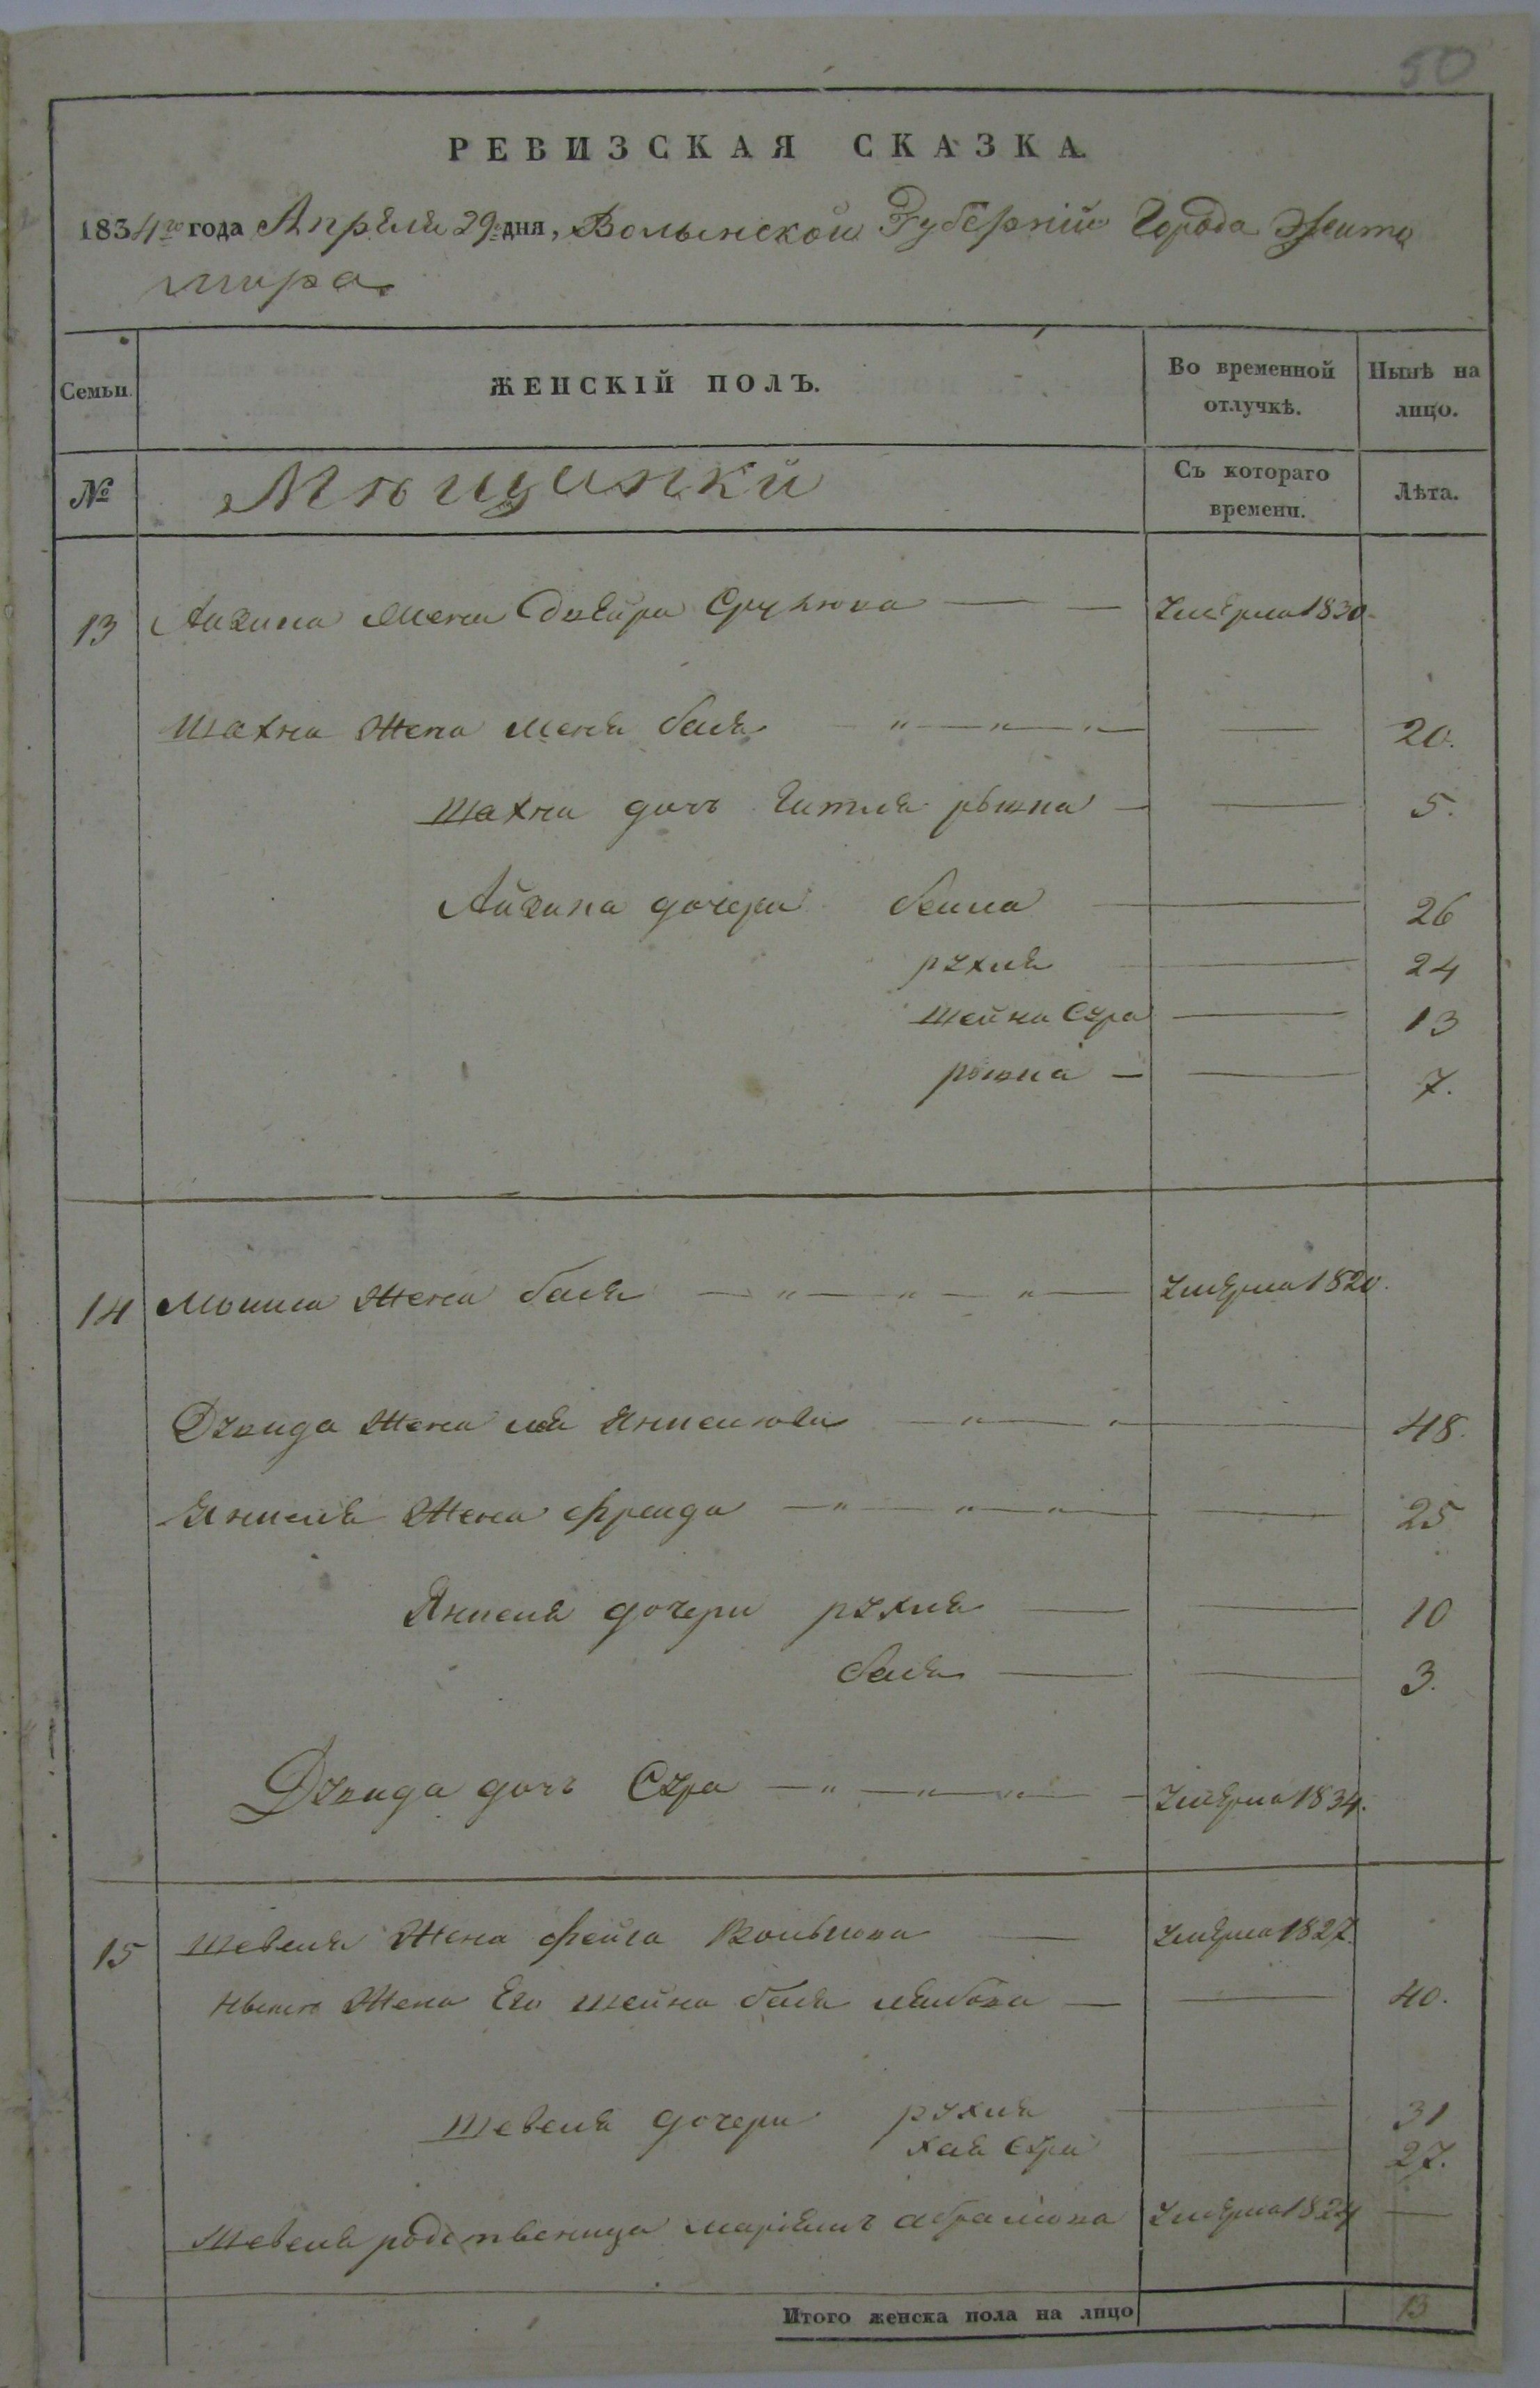 50
РЕВИЗСКАЯ СКАЗКА.
1834го года Апреля 29 дня, Волынской Губерніи Города Жито
мира
Семьи. ЖЕНСКІЙ ПОЛЪ. Во временной отлучкѣ. Нынѣ на лицо.
№ Мѣщанки Съ котораго времени. Лѣта.
13 жена Двейра Сруліова — — умерла 1830.
Шахна жена Меня бейля — 20.
Шахна дочъ Гитля — 5.
дочери бейла — 26
рухля — 24
Шейна Сура — 13
7.
14 жена бейля — умерла 1820.
Дувида жена лея — 48.
Янкеля жена фрейда — 25
Янкеля дочери рухля — 10
бейля — 3.
Дувида дочъ Сура — умерла 1834.
15 Шевеля жена фейга Вольфова — умерла 1827.
жена Его Шейна бейля лейбова — 40.
Шевеля дочери рухля — 31
хая Сура — 27.
Шевеля родственица маріямъ абрамова умерла 1824 —
Итого женска пола на лицо 13